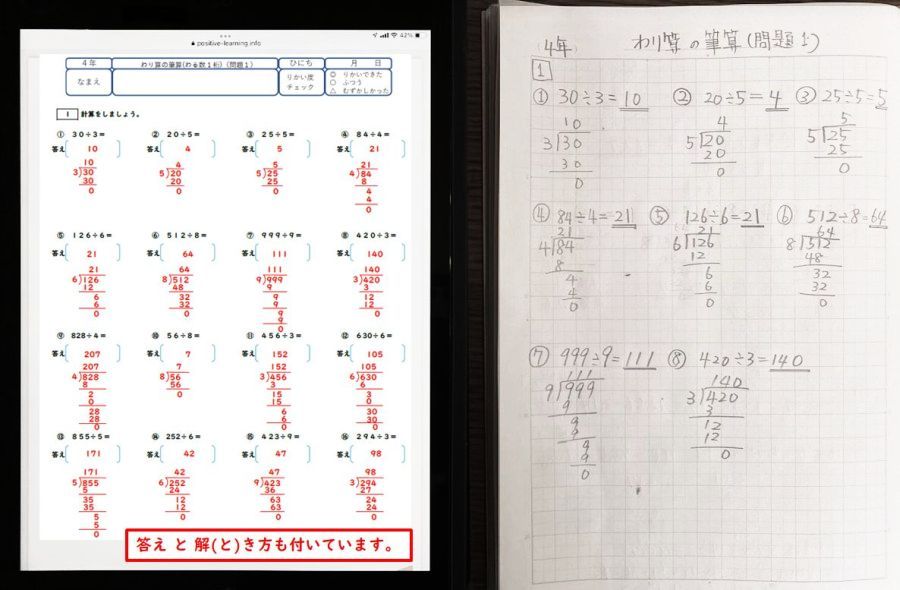 42%
positive-learning.info
4年 わり算の筆算(わる数1桁)(問題1) ひにち 月 日
なまえ りかい度 チェック ◎ りかいできた
○ ふつう
△ むずかしかった
1 計算をしましょう。
① 30÷3= ② 20÷5= ③ 25÷5= ④ 84÷4=
答え 10 答え 4 答え 5 答え 21
10 4 5 21
3)30 5)20 5)25 4)84
30 20 25 8
0 0 0 4
4
0
⑤ 126÷6= ⑥ 512÷8= ⑦ 999÷9= ⑧ 420÷3=
答え 21 答え 64 答え 111 答え 140
21 64 111 140
6)126 8)512 9)999 3)420
12 48 9 3
6 32 9 12
6 32 9 12
0 0 9 0
9
0
⑨ 828÷4= ⑩ 56÷8= ⑪ 456÷3= ⑫ 630÷6=
答え 207 答え 7 答え 152 答え 105
207 7 152 105
4)828 8)56 3)456 6)630
8 56 3 6
2 0 15 3
0 15 0
28 6 30
28 6 30
0 0 0
⑬ 855÷5= ⑭ 252÷6= ⑮ 423÷9= ⑯ 294÷3=
答え 171 答え 42 答え 47 答え 98
171 42 47 98
5)855 6)252 9)423 3)294
5 24 36 27
35 12 63 24
35 12 63 24
5 0 0 0
5
0
答え と 解(と)き方も付いています。
(4年) わり算の筆算(問題1)
1
① 30÷3=10 ② 20÷5=4 ③ 25÷5=5
10 4 5
3)30 5)20 5)25
30 20 25
0 0 0
④ 84÷4=21 ⑤ 126÷6=21 ⑥ 512÷8=64
21 21 64
4)84 6)126 8)512
8 12 48
4 6 32
4 6 32
0 0 0
⑦ 999÷9=111 ⑧ 420÷3=140
111 140
9)999 3)420
9 3
9 12
9 12
9 0
9
0